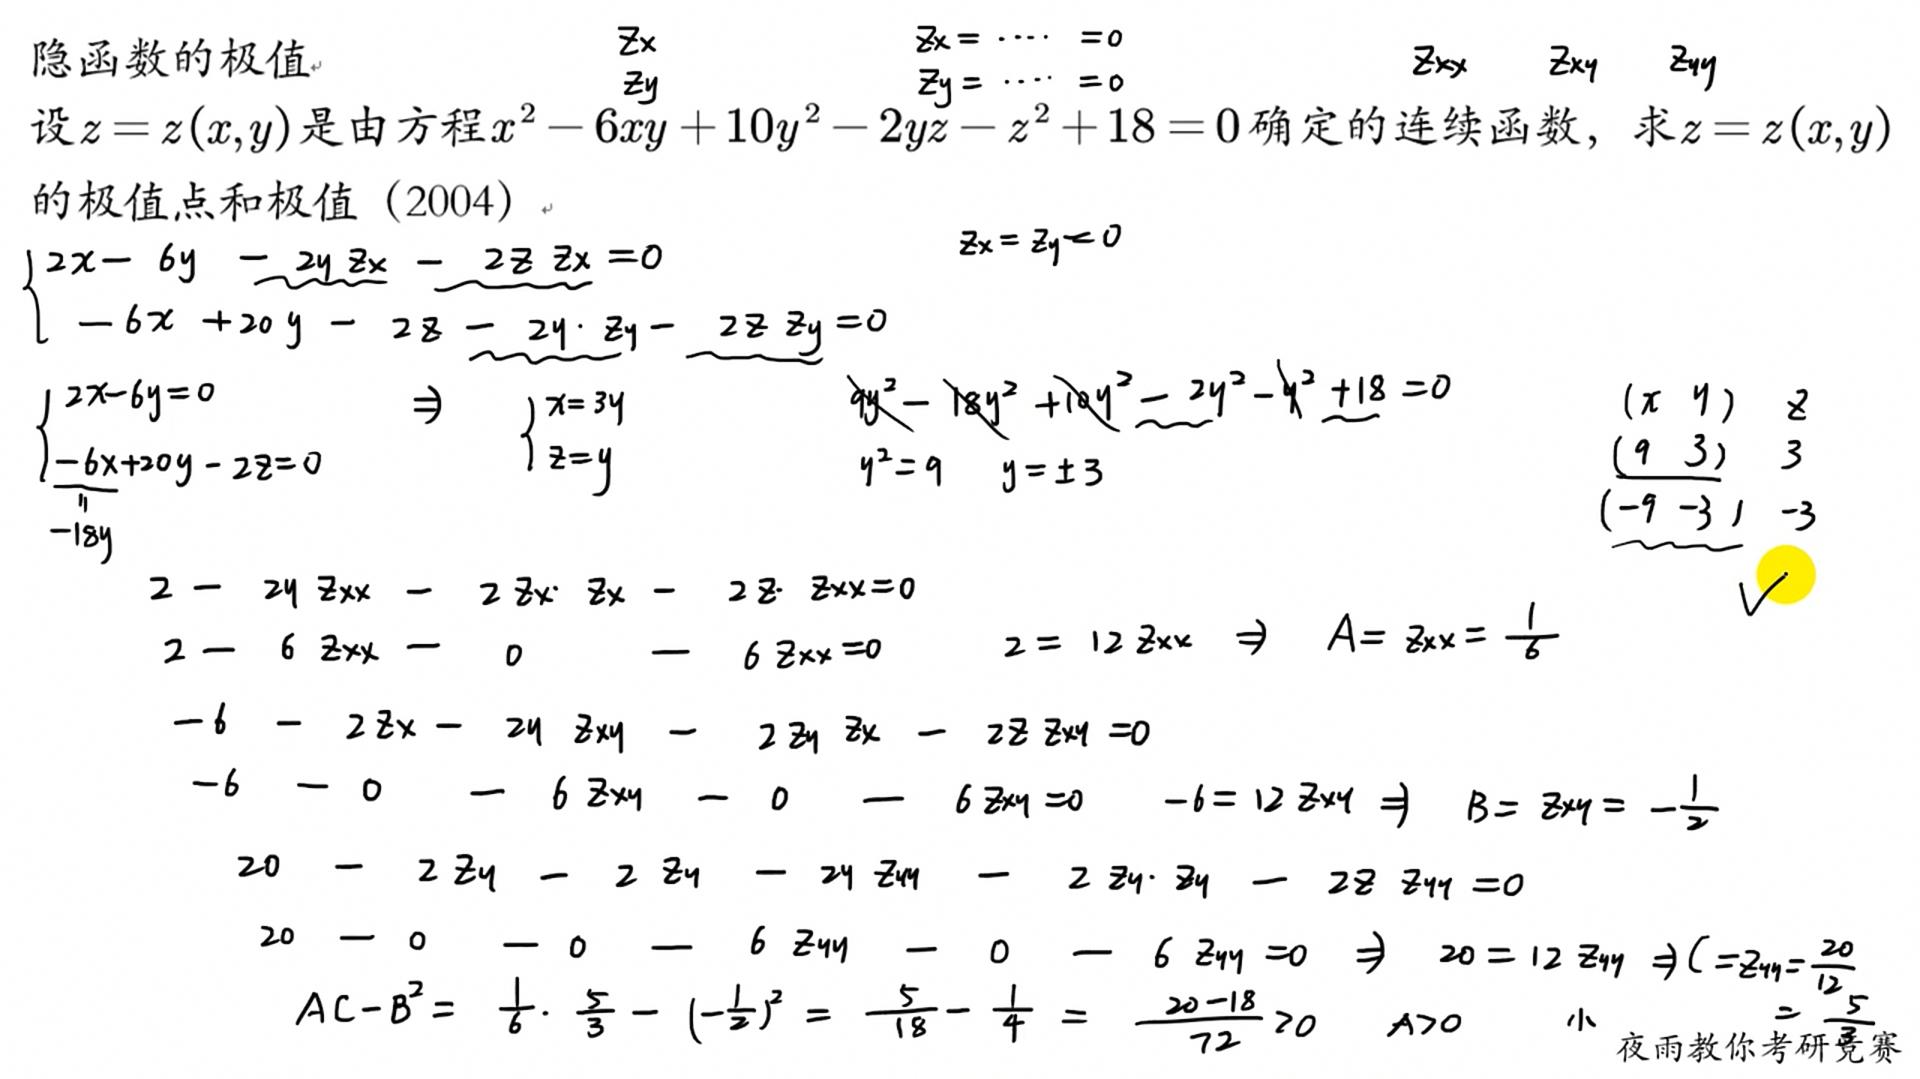 隐函数的极值
zx zx = ···· = 0 zxx zxy zyy
zy zy = ···· = 0
设z = z(x,y)是由方程x² − 6xy + 10y² − 2yz − z² + 18 = 0确定的连续函数，求z = z(x,y)
的极值点和极值（2004）
2x − 6y − 2y zx − 2z zx = 0 zx = zy = 0
−6x + 20y − 2z − 2y· zy − 2z zy = 0
2x−6y=0 ⇒ x=3y 9y² − 18y² + 10y² − 2y² − y² + 18 = 0 (x y) z
−6x+20y−2z=0 z=y y²=9 y=±3 (9 3) 3
−18y (−9 −3) −3
2 − 2y zxx − 2zx· zx − 2z· zxx=0 ✓
2 − 6 zxx − 0 − 6 zxx=0 2 = 12 zxx ⇒ A= zxx = 1/6
−6 − 2zx − 2y zxy − 2zy zx − 2z zxy =0
−6 − 0 − 6 zxy − 0 − 6 zxy=0 −6=12 zxy ⇒ B= zxy = −1/2
20 − 2 zy − 2 zy − 2y zyy − 2 zy· zy − 2z zyy =0
20 − 0 − 0 − 6 zyy − 0 − 6 zyy =0 ⇒ 20 = 12 zyy ⇒ C =zyy= 20/12
AC−B² = 1/6 · 5/3 − (−1/2)² = 5/18 − 1/4 = 20−18/72 >0 A>0 小 = 5/3
夜雨教你考研竞赛